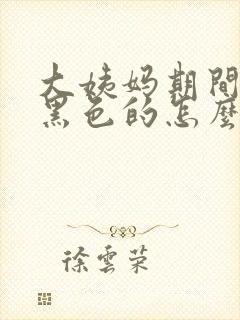 大姨妈期間
黑色的怎麼
徐雲荣